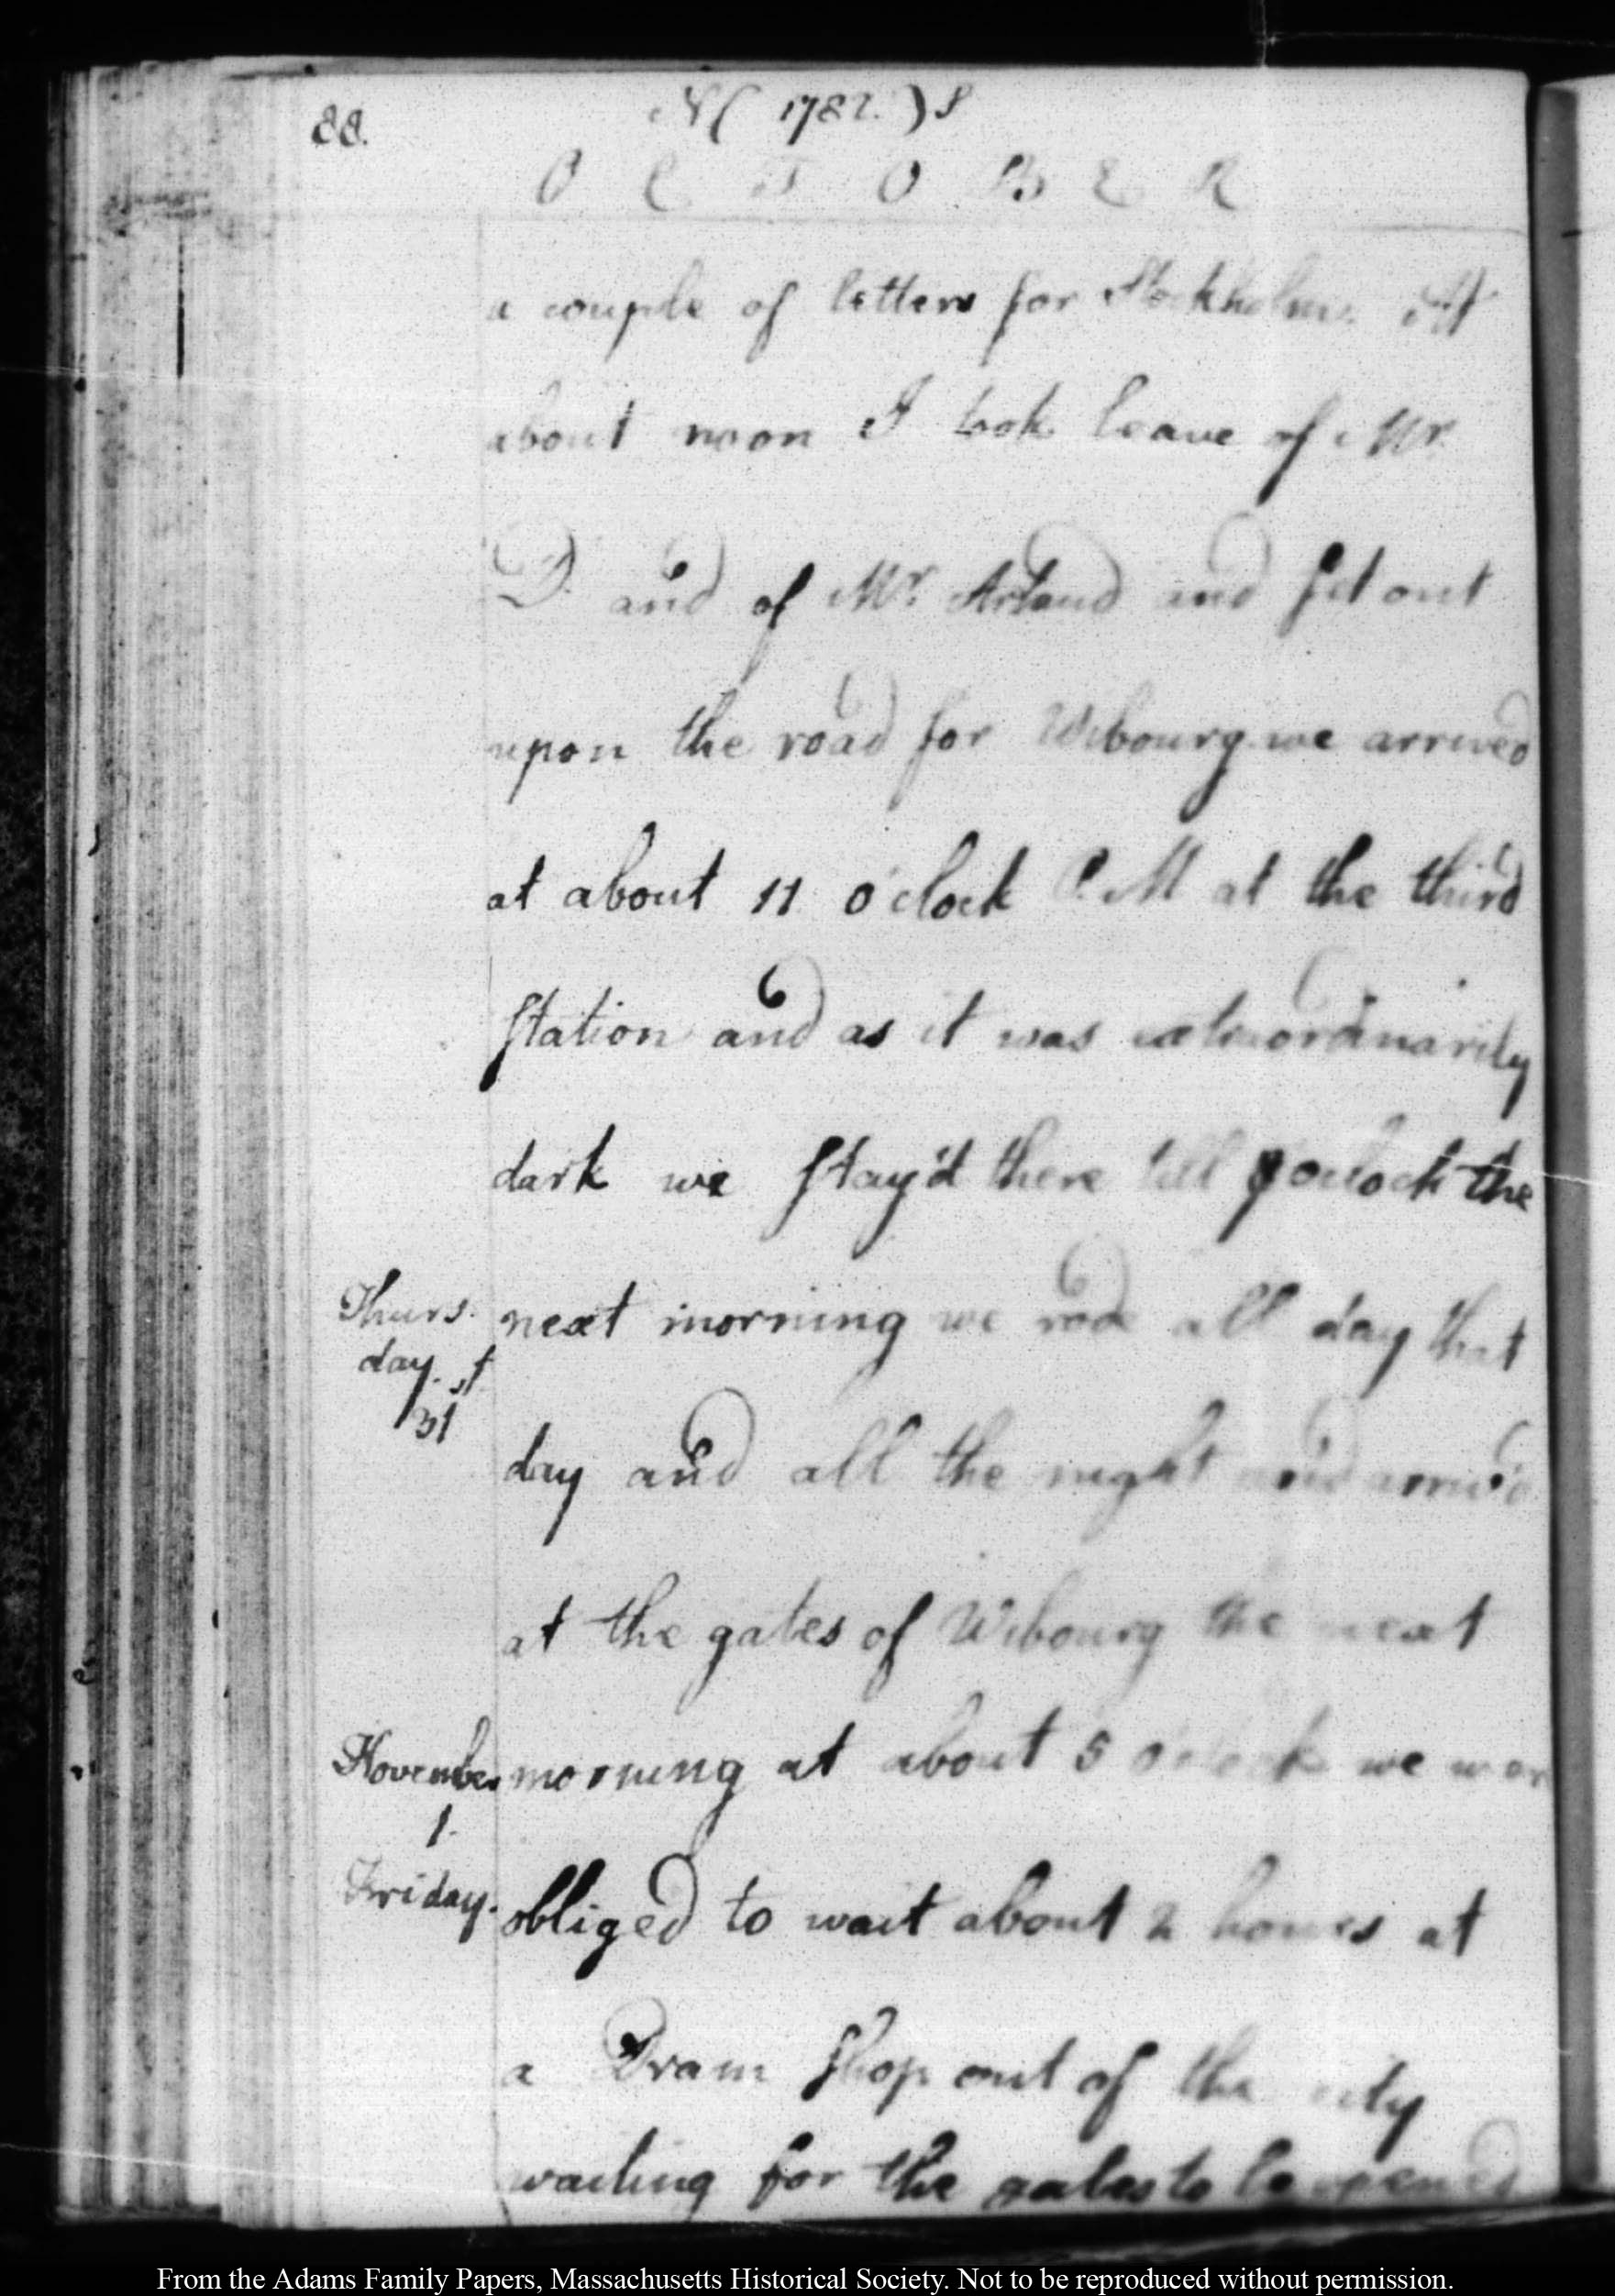 88.
N( 1782. )S
OCTOBER
a couple of letters for Stockholm. At
about noon I took leave of Mr.
D. and of Mr. Artaud and set out
upon the road for Wibourg. we arrived
at about 11 o'clock P.M at the third
station and as it was extraordinarily
dark we stay'd there till o'clock the
Thurs. next morning we rode all day that
day. st
31
day and all the night and arriv'd
at the gates of Wibourg the next
November morning at about 5 o'clock we wer
1.
Friday. obliged to wait about 2 hours at
a Dram shop out of the city
waiting for the gates to be opened
From the Adams Family Papers, Massachusetts Historical Society. Not to be reproduced without permission.